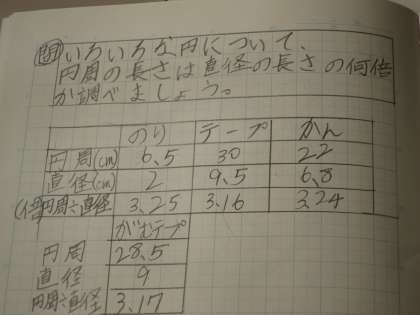 問 いろいろな円について、
円周の長さは直径の長さの何倍
か調べましょう。
のり テープ かん
円周(cm) 6.5 30 22
直径(cm) 2 9.5 6.8
(倍)円周÷直径 3.25 3.16 3.24
がむテプ
円周 28.5
直径 9
円周÷直径 3.17